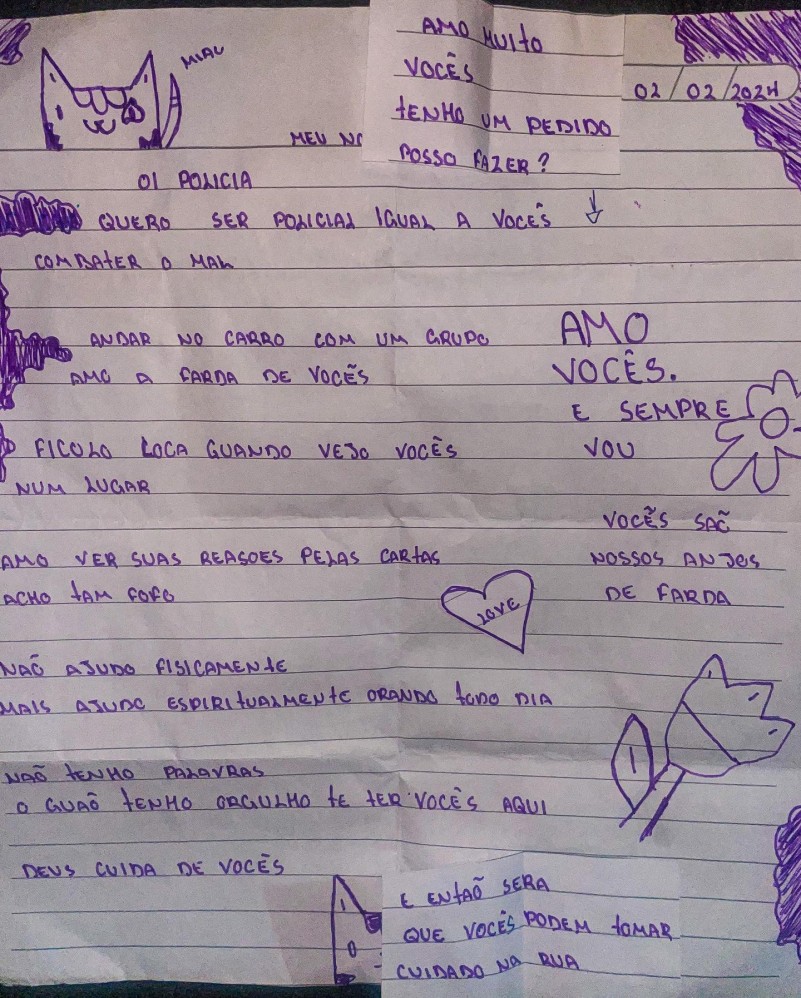 MIAU
AMO MUITO
VOCÊS
TENHO UM PEDIDO
POSSO FAZER?
02/02/2024
MEU NO
OI POLICIA
QUERO SER POLICIAL IGUAL A VOCÊS
COMBATER O MAL
ANDAR NO CARRO COM UM GRUPO
AMO A FARDA DE VOCÊS
FICOLO LOCA GUANDO VEJO VOCÊS
NUM LUGAR
AMO VER SUAS REASOES PELAS CARTAS
ACHO TAM FOFO
LOVE
NAÕ AJUDO FISICAMENTE
MAIS AJUDO ESPIRITUALMENTE ORANDO TODO DIA
NAÕ TENHO PALAVRAS
O GUAÕ TENHO ORGULHO TE TER VOCÊS AQUI
DEUS CUIDA DE VOCÊS
AMO
VOCÊS.
E SEMPRE
VOU
VOCÊS SAÕ
NOSSOS ANJOS
DE FARDA
E ENTAÕ SERA
QUE VOCÊS PODEM TOMAR
CUIDADO NA RUA